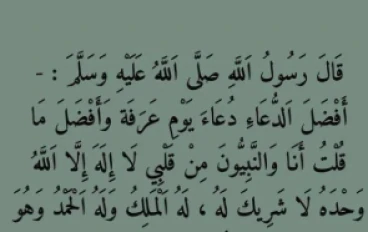 قَالَ رَسُولُ اَللَّهِ صَلَّى اَللَّهُ عَلَيْهِ وَسَلَّمَ : -
أَفْضَلَ اَلدُّعَاءِ دُعَاءَ يَوْمِ عَرَفَة وَأَفْضَلَ مَا
قُلْتُ أَنَا وَالنَّبِيُّونَ مِنْ قَلْبِي لَا إِلَهَ إِلَّا اَللَّهُ
وَحْدَهُ لَا شَرِيكَ لَهُ ، لَهُ اَلْمَلِكُ وَلَهُ اَلْحَمْدُ وَهُوَ